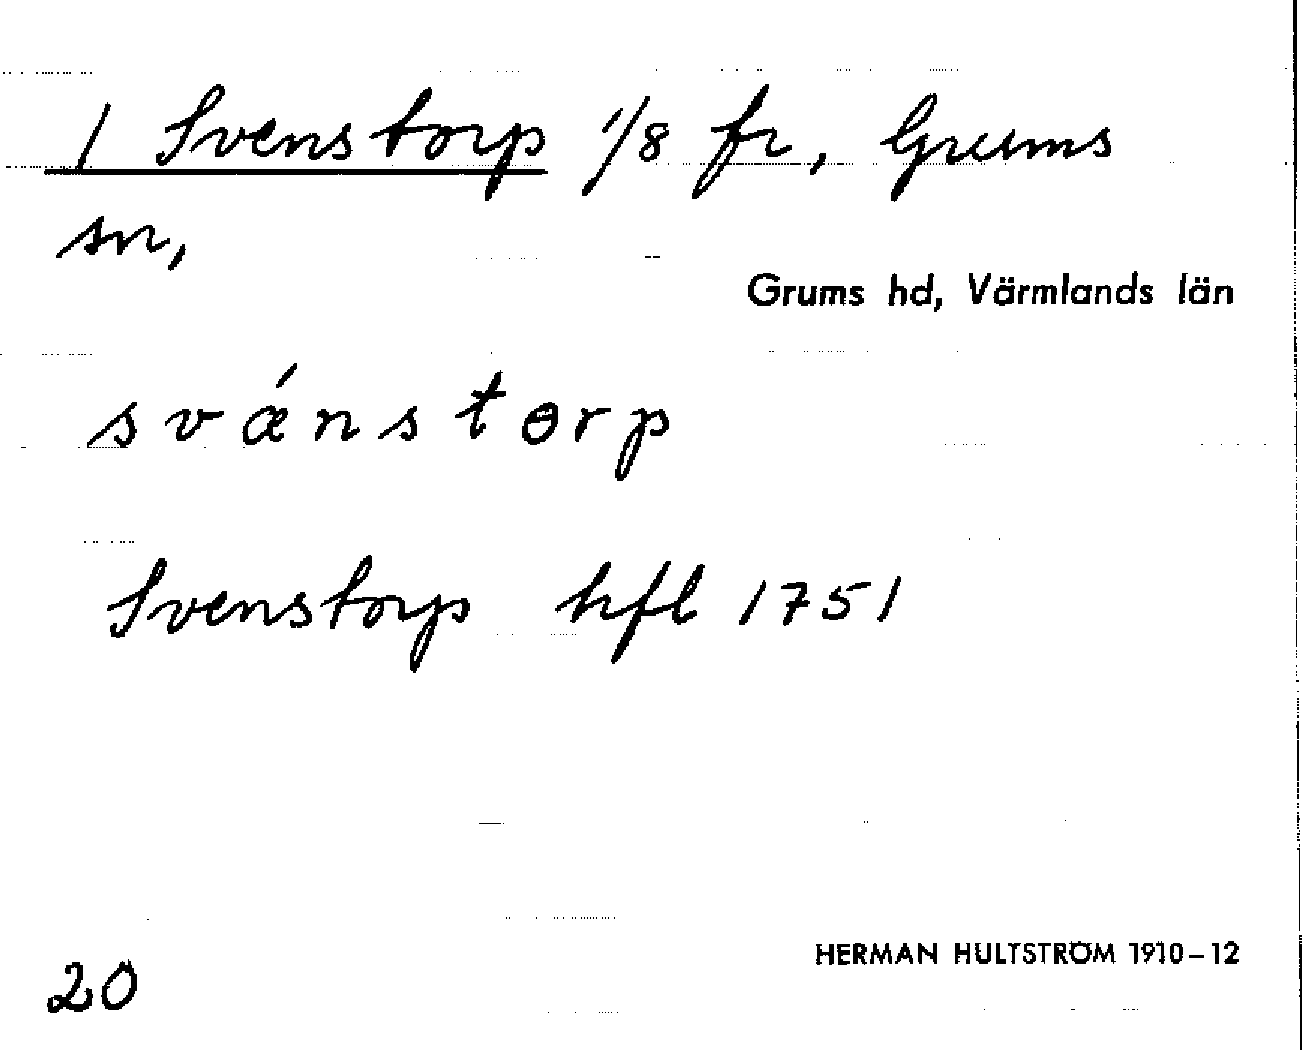 1 Svenstorp 1/8 fr, Grums
sn,
Grums hd, Värmlands län
svǽnstɵrp
Svenstorp hfl 1751
HERMAN HULTSTRÖM 1910–12
20